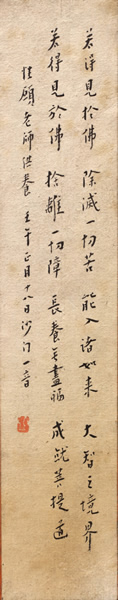 若得見於佛 除滅一切苦 能入諸如來 大智之境界
若得見於佛 捨離一切障 長養無盡福 成就菩提道
佳顧老師供養 壬午正月十八日沙门一音